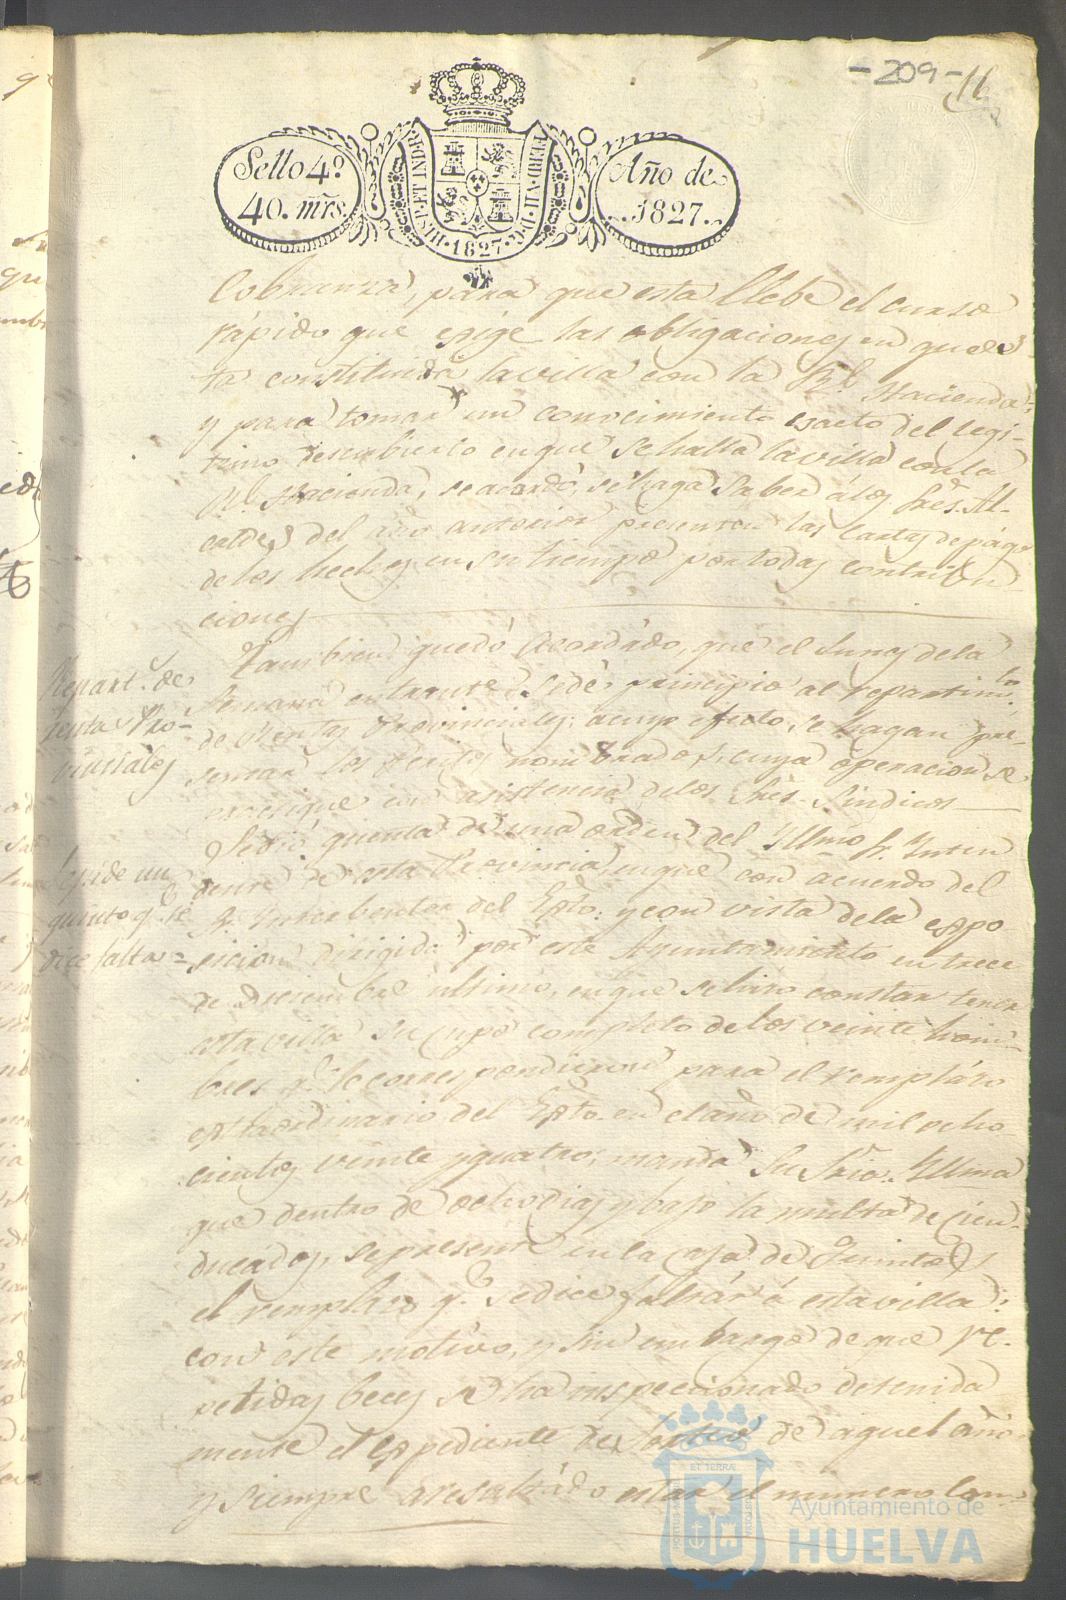 -209-
Sello 4º
40. mrs.
HISP. ET IND. R.
FERD. VII. D. G.
1827
Año de
1827.
Cobranza, para que esta llebe el curso
rápido que esige las obligaciones en que es-
ta constituida la villa con la Rl. Hacienda:
y para tomar un conocimiento esacto del legi-
timo descubierto en que se halla la villa con la
Rl. Hacienda, se acordó, se haga saber á los Sres. Al-
caldes del año anterior presenten las cartas de pago
de los hechos en su tiempo por todas contribu-
ciones
Repart.º de
rentas Pro-
vinciales
Tambien quedó acordado, que el Lunes de la
semana entrante se dé principio al repartim.to
de Rentas Provinciales; a cuyo efecto, se hagan pre-
sentar los Peritos nombrados, cuya operacion se
practique con asistencia de los Sres. Síndicos
Se pide un
quinto q.e se
dice falta=
Se dió quenta de una orden del Yllmo Sr. Inten
dente de esta Provincia, en que con acuerdo del
Sr. Interbentor del Exto. y con vista de la espo-
sicion dirigida por este Ayuntamiento en trece
de Diciembre ultimo, en que se hizo constar tener
esta villa su cupo completo de los veinte hom-
bres q.e le correspondieron para el remplazo
extraordinario del Exto. en el año de mil ocho-
cientos veinte y quatro; manda Su Sria. Yllma
que dentro de ocho dias y bajo la multa de cien
ducados, se presente en la caja de Quintos
el remplazo q.e se dice faltar á esta villa:
con este motivo, y sin embargo de que re-
petidas beces se ha inspeccionado detenida
mente el expediente de sorteo de aquel año
y siempre a resultado estar el numero com-
Ayuntamiento de
HUELVA